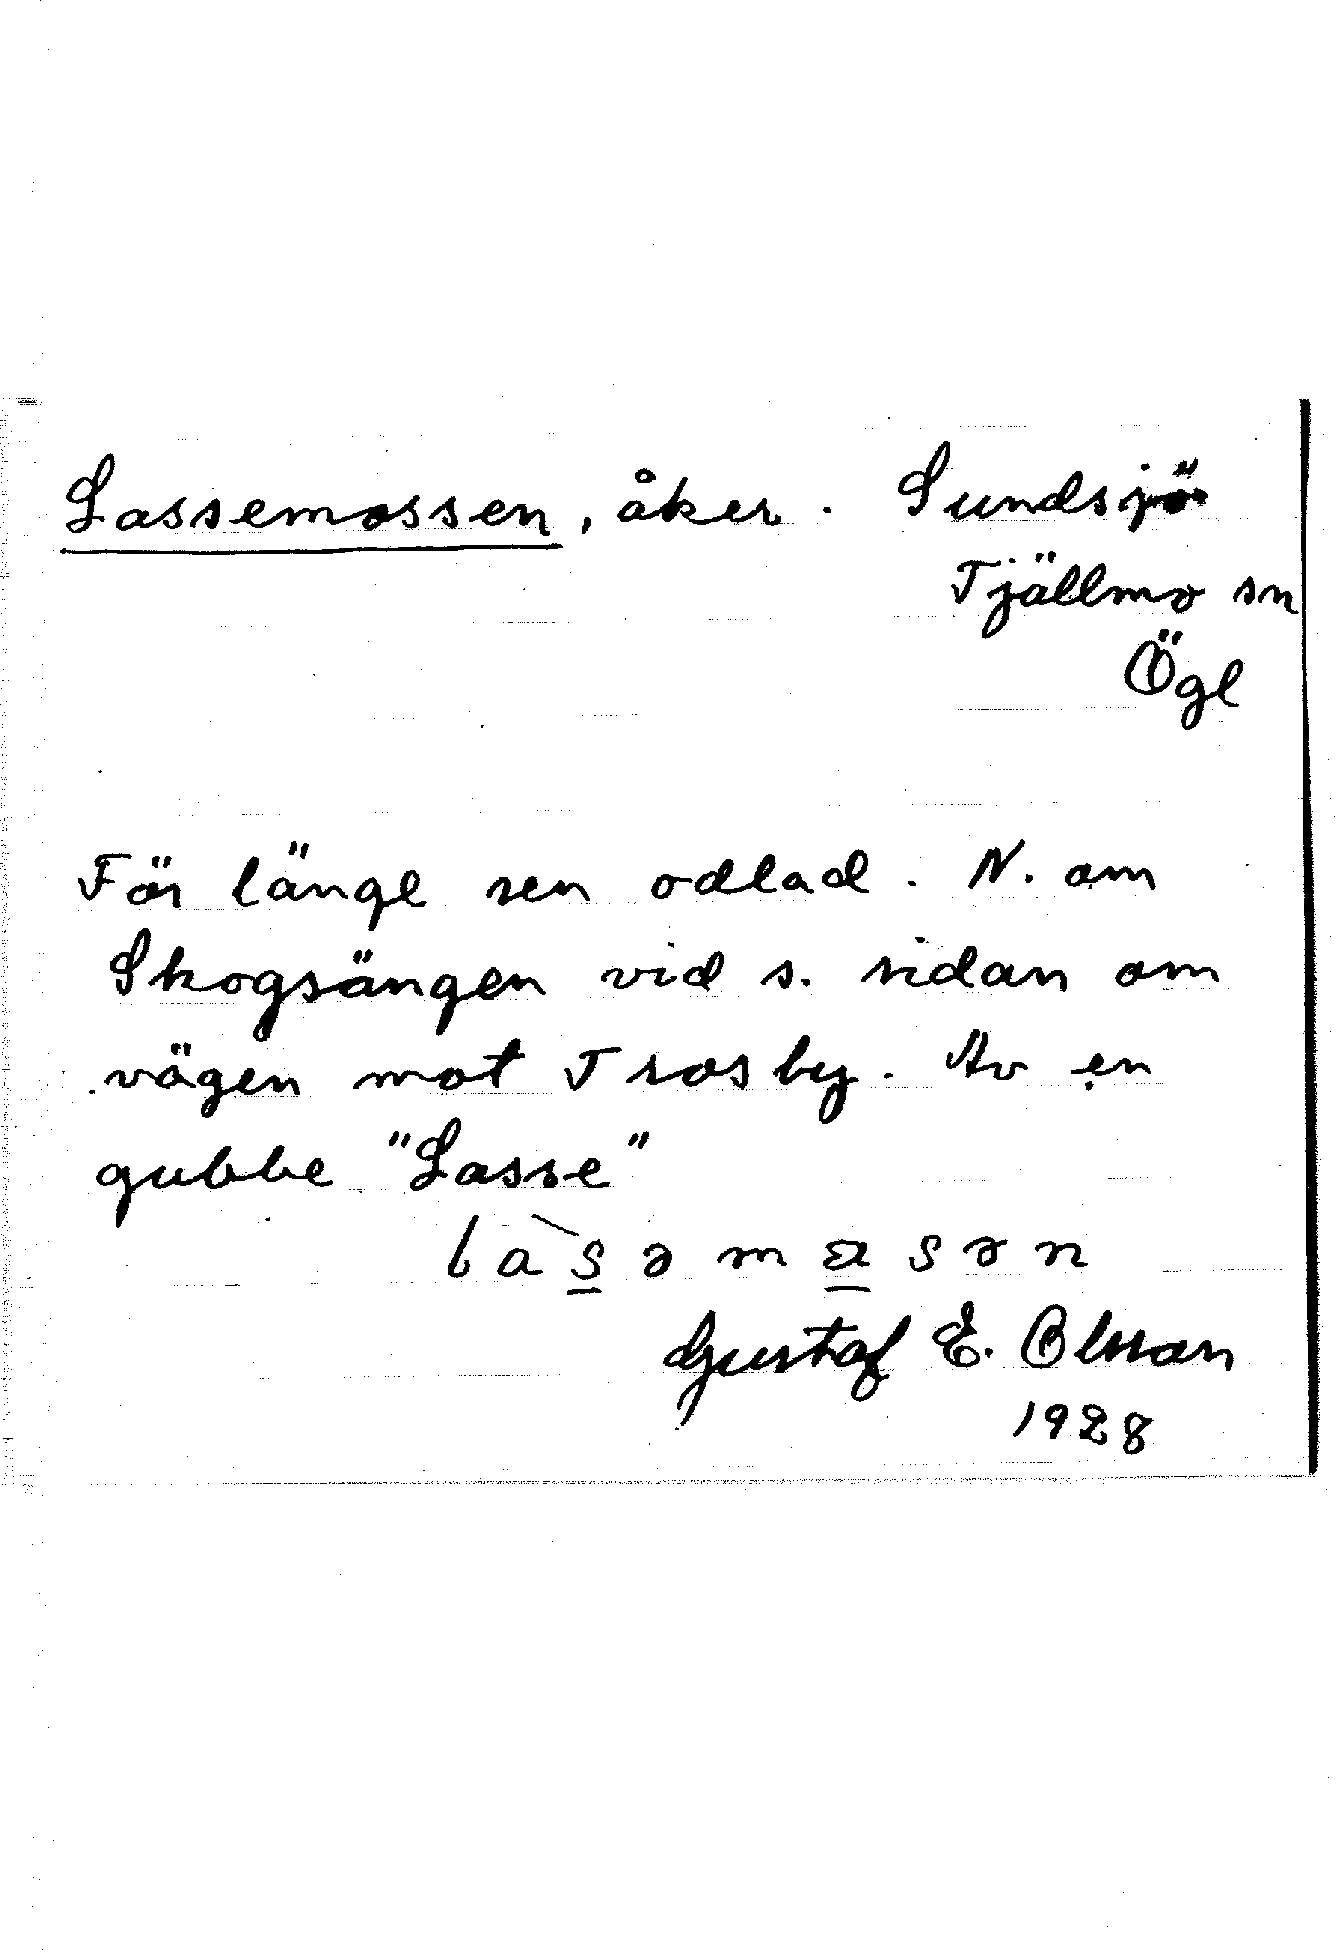 Lassemossen, åker. Sundsjö
Tjällmo sn
Ögl
För länge sen odlad. N. om
Skogsängen vid s. sidan om
vägen mot Trosby. Av en
gubbe "Lasse"
Gustaf E. Olsson
1928